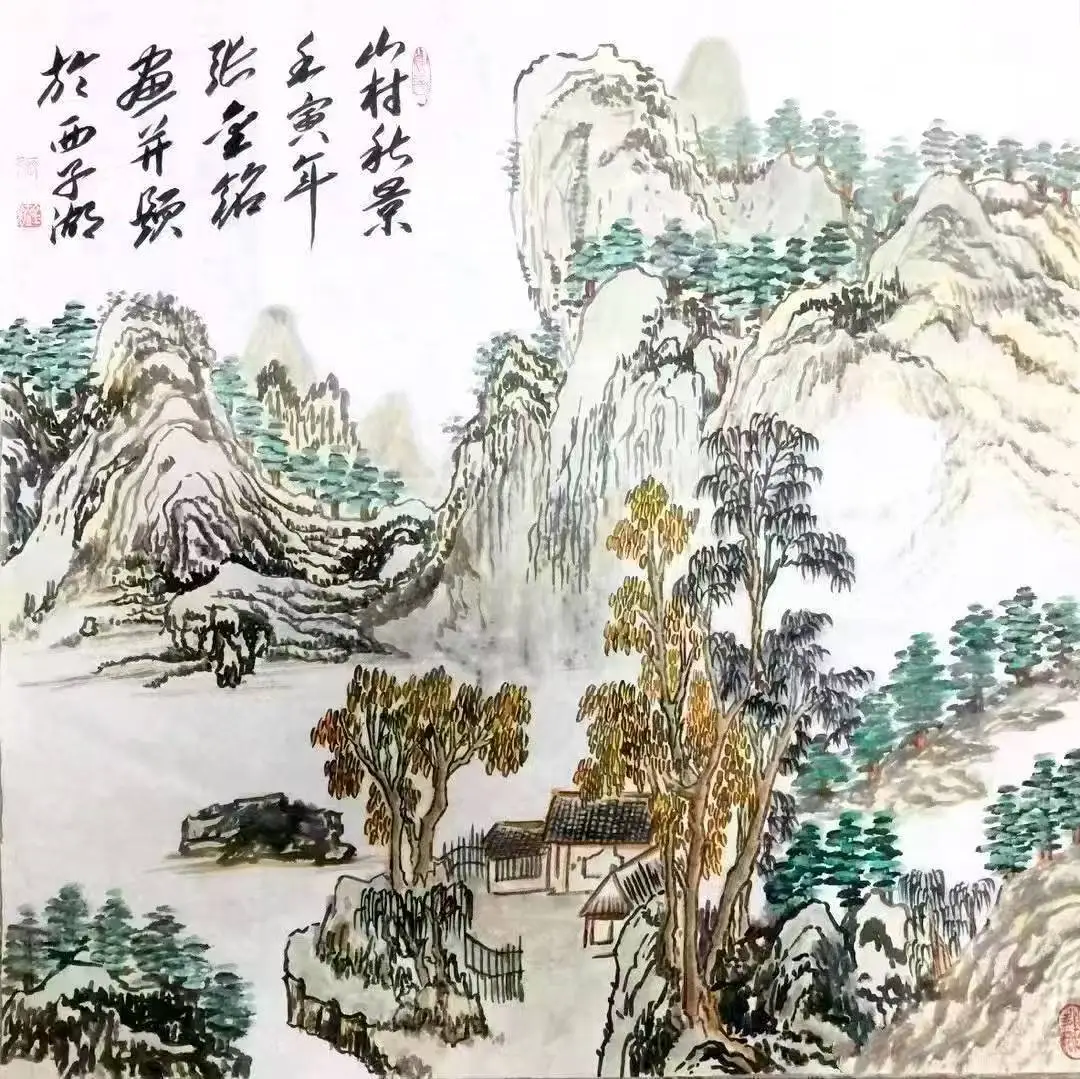 山村秋景
壬寅年
张金铭
画并题
於西子湖